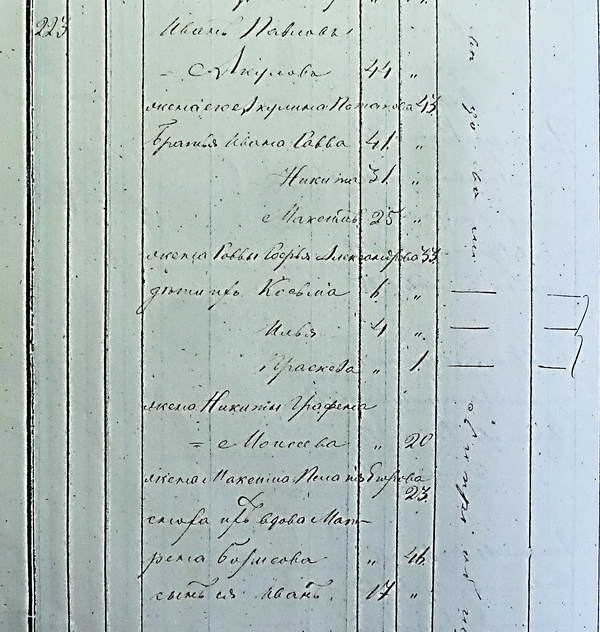 223 Иванъ Павловъ
= Акулова 44 "
жена его Акулина Потапова 43
Братья Ивана Савва 41 "
Никита 31 "
Максимъ 25 "
жена Саввы Софья Александрова 33
дѣти ихъ Козьма 6 "
Илья 4 "
Прасковья " 1
жена Никиты Графена
= Моисеева " 20
жена Максима Егорова
23
сноха ихъ вдова Мат-
рена Борисова " 46
сынъ ея Иванъ 17 "